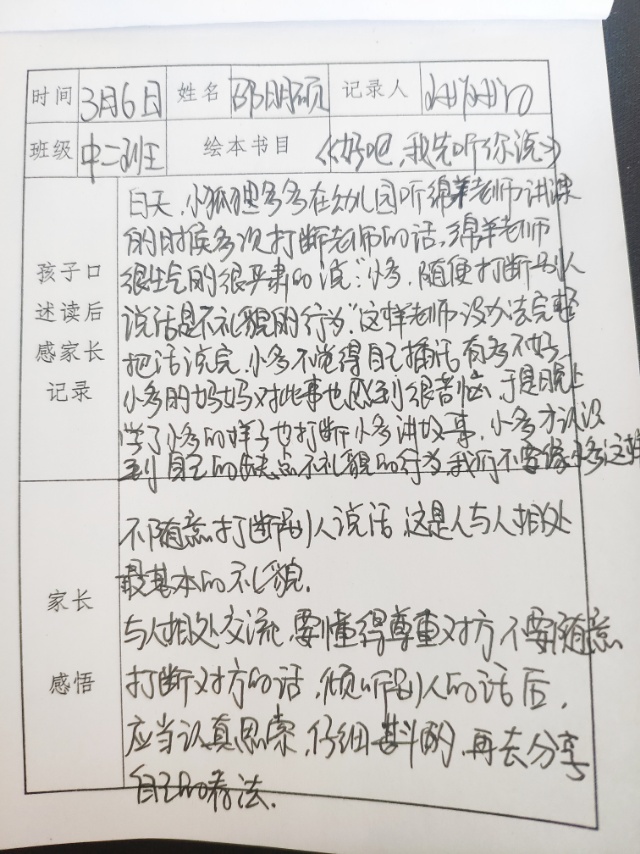 时间 3月6日 姓名 邵明硕 记录人
班级 中二班 绘本书目 《好吧,我先听你说》
孩子口
述读后
感家长
记录
白天,小狐狸多多在幼儿园听绵羊老师讲课
的时候多次打断老师的话,绵羊老师
很生气的很严肃的说:"小多,随便打断别人
说话是不礼貌的行为."这样老师没办法完整
把话说完.小多不觉得自己插话有多不好
小多的妈妈对此事也感到很苦恼,于是晚上
学了小多的样子也打断小多讲故事,小多才认识
到自己的缺点不礼貌的行为,我们不要像小多这样
家长
感悟
不随意打断别人说话,这是人与人相处
最基本的礼貌.
与人相处交流,要懂得尊重对方,不要随意
打断对方的话,倾听别人的话后,
应当认真思索,仔细斟酌,再去分享
自己的看法.